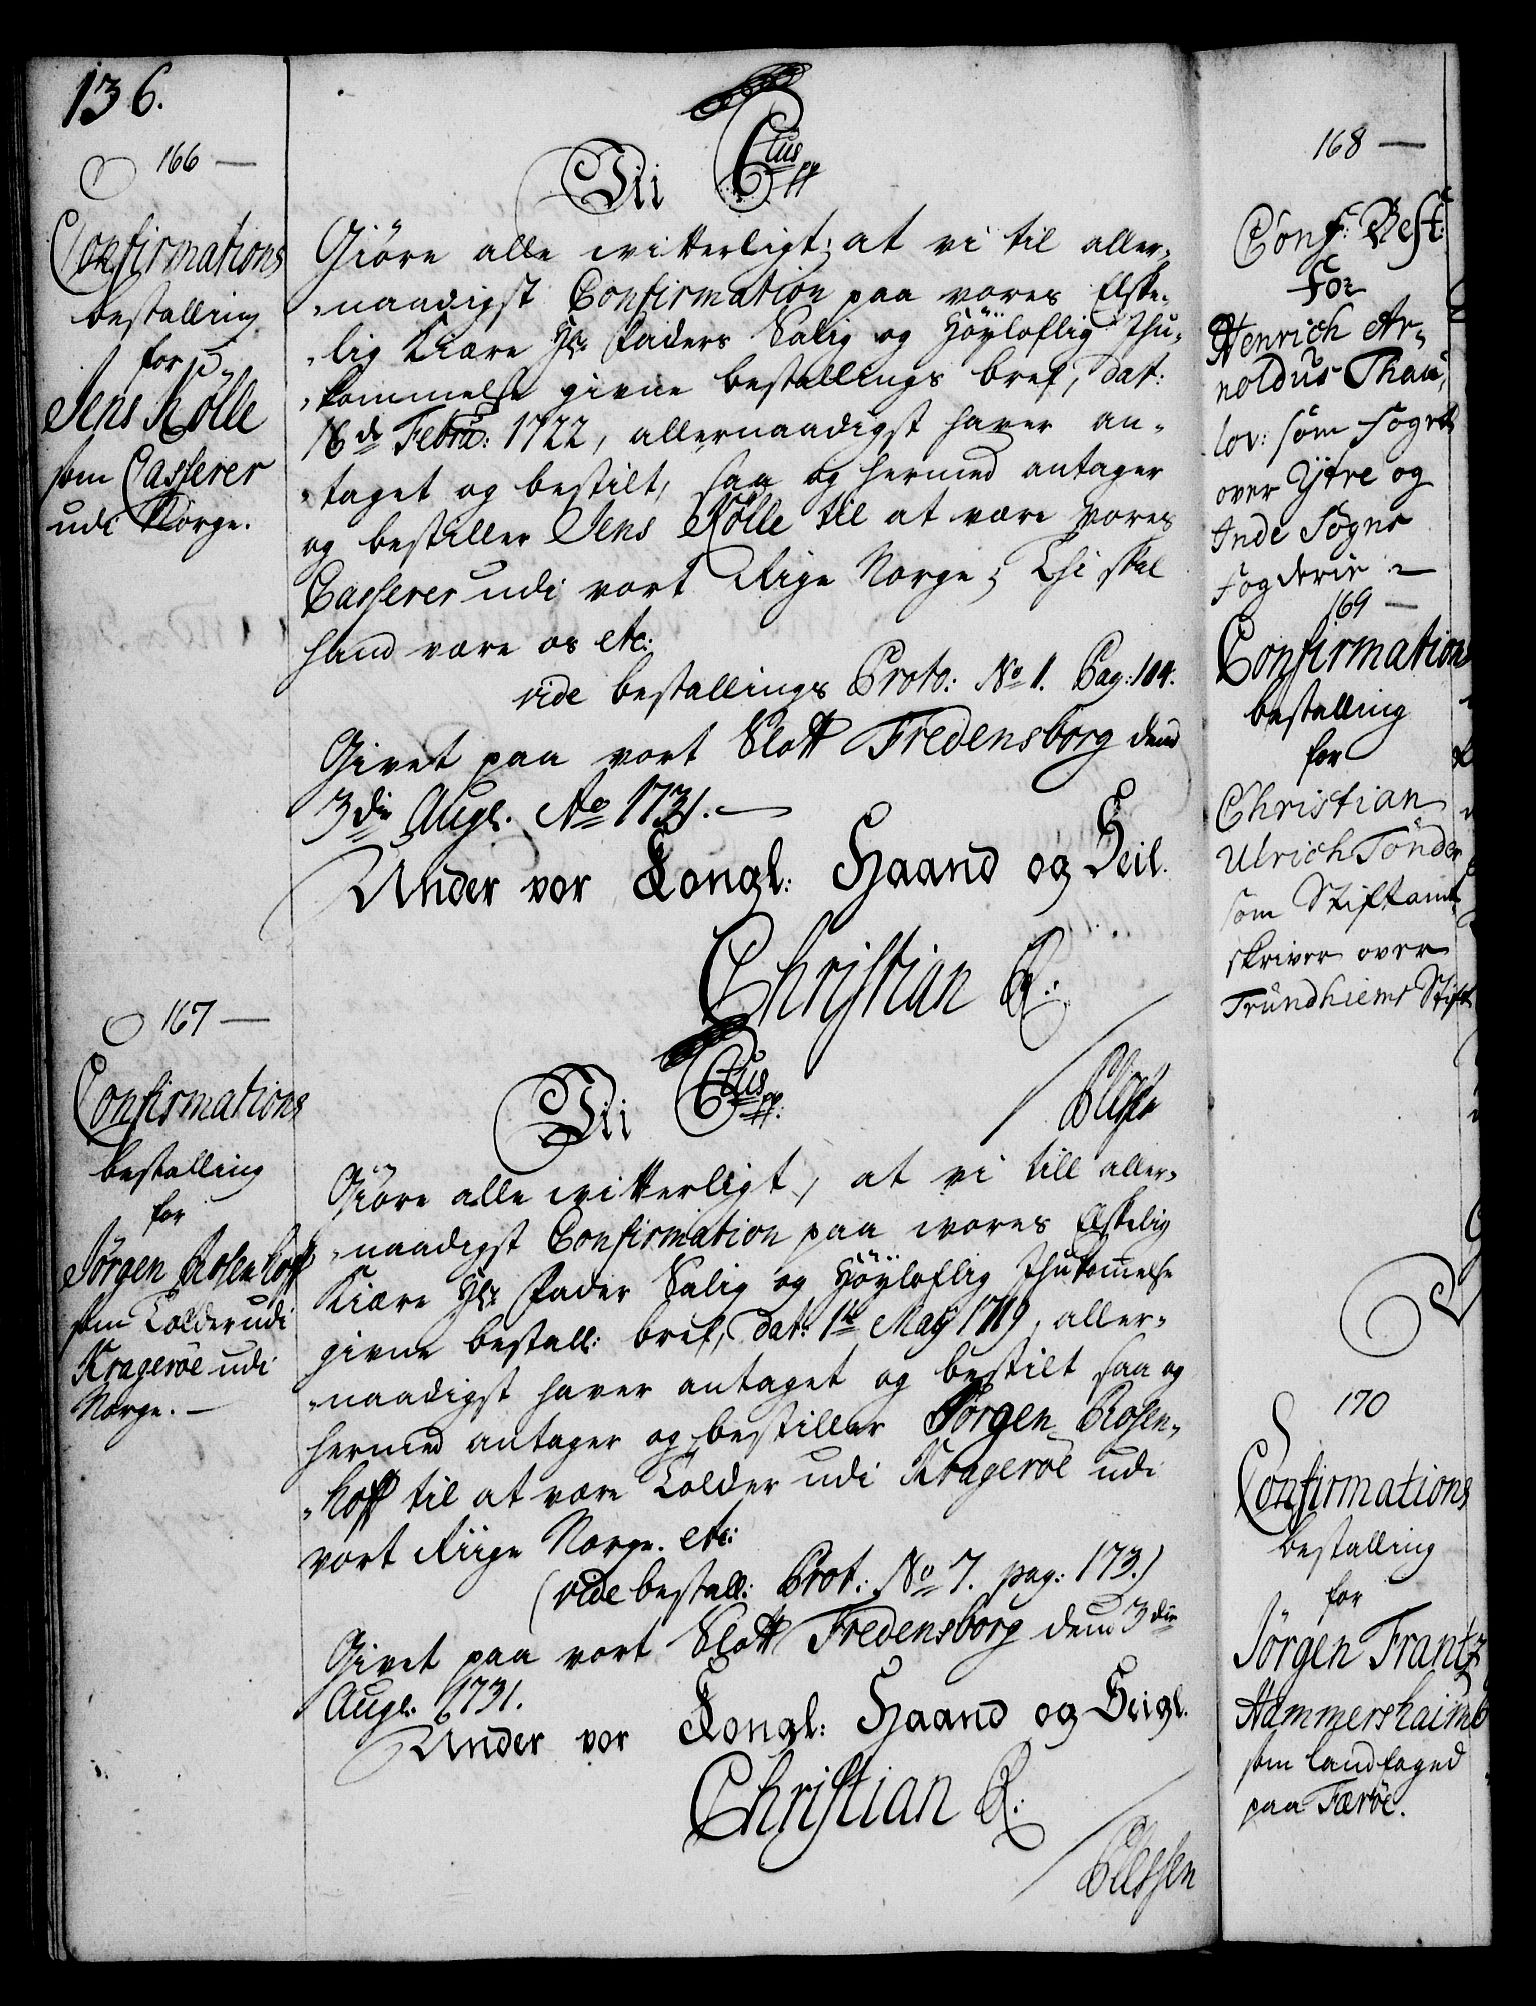 136.
166 —
Confirmations
bestalling
for
Jens Kølle
som Casserer
udi Norge.
Vii Ctus pp
Giöre alle witterligt, at vi til aller-
-naadigst Confirmation paa vores Elske-
-lig Kiære Hr: Faders Salig og Höyloflig Ihu-
-kommelse givne bestallings bref, dat:
16de Febru: 1722, allernaadigst haver an-
-taget og bestilt, saa og hermed antager
og bestiller Jens Kølle til at være vores
Casserer udi vort Rige Norge; Thi skal
hand være os etc:
vide bestallings Proto: No 1. Pag: 104.
Givet paa vort Slott Fredensborg dend
3die Aug: Ao 1731. —
Under vor Kongl: Haand og Seil.
Christian R:
167 —
Confirmations
bestalling
for
Jörgen Rosenhoff
som Tolder udi
Krageröe udi
Norge. —
Vii Ctus pp:
Giöre alle witterligt, at vi till aller-
-naadigst Confirmation paa wores Elskelig
Kiære Hr: Fader Salig og Höyloflig Ihukommelse
givne bestall: bref, dat: 1te May 1719, aller-
-naadigst haver antaget og bestilt saa og
hermed antager og bestiller Jörgen Rosen-
-hoff til at være Tolder udi Krageröe udi
vort Riige Norge. etc:
(vide bestall: Prot: No 7. pag: 173.)
Givet paa vort Slott Fredensborg dend 3die
Aug: 1731.
Under vor Kongl: Haand og Seigl.
Christian R:
168 —
Conf: Best:
For
Henrich Ar-
noldus Thau-
lov: som Foget
over Ytre og
Inde Sogns
Fogderie —
169 —
Confirmations
bestalling
for
Christian
Ulrich Tönder
som Stiftamt-
skriver over
Trundhiems Stift
170
Confirmations
bestalling
for
Jörgen Frantz
Hammershaimb
som landfoged
paa Færöe.